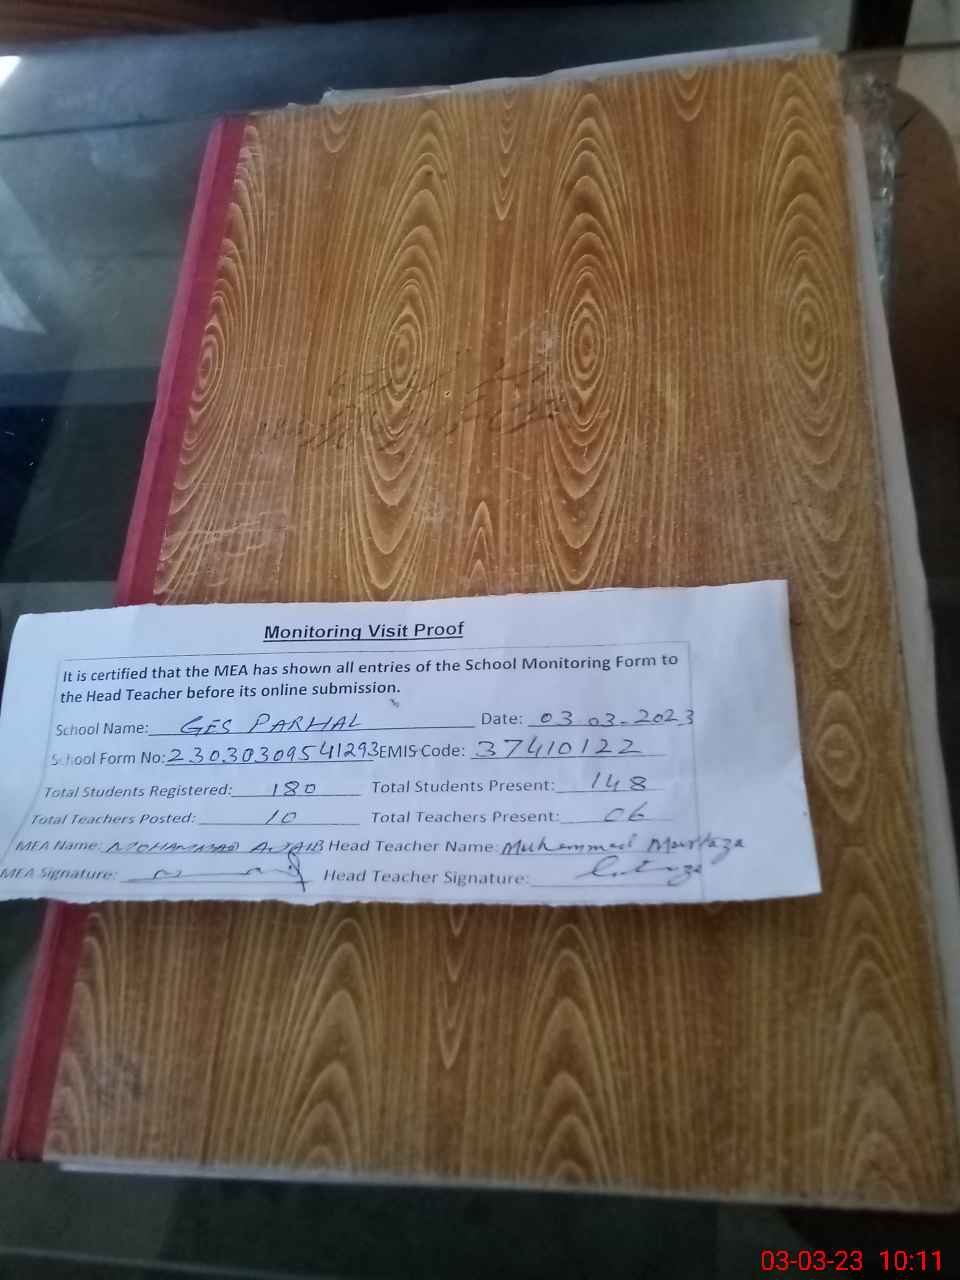 Monitoring Visit Proof
It is certified that the MEA has shown all entries of the School Monitoring Form to
the Head Teacher before its online submission.
School Name: GES PARHAL Date: 03.03-2023
School Form No: 23030309541293 EMIS Code: 37410122
Total Students Registered: 180 Total Students Present: 148
Total Teachers Posted: 10 Total Teachers Present: 06
MEA Name: MOHAMMAD AJAIB Head Teacher Name: Muhammad Murtaza
MEA Signature: Head Teacher Signature:
03-03-23 10:11